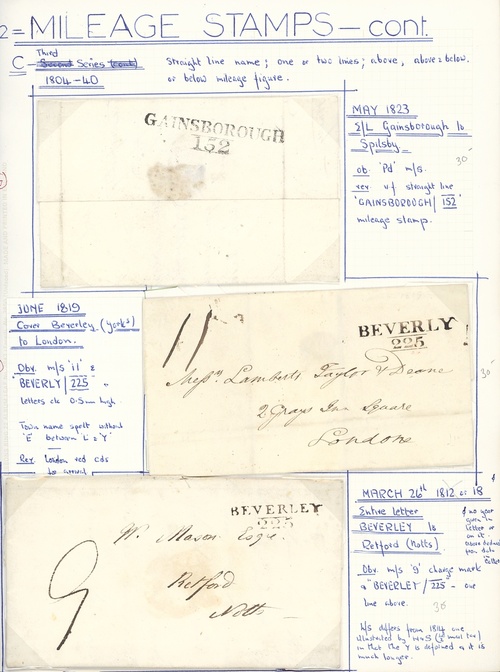 2= MILEAGE STAMPS - cont.
C - Third
Second Series (cont)
1804-40
Straight line name; one or two lines; above, above & below.
or below mileage figure.
GAINSBOROUGH
152
MAY 1823
E/L Gainsborough to
Spilsby
30'
ob 'Pd' m/s.
rev. v.f straight line
'GAINSBOROUGH/152'
mileage stamp.
JUNE 1819
Cover Beverley (Yorks)
to London.
Obv. m/s '11' &
BEVERLY/225
letters ck 0.5mm high.
Town name spelt without
'E' between 'L' & 'Y'
Rev. London red cds
to arrival
11
BEVERLY
225
Messrs. Lamberts Taylor & Deane
2 Grays Inn Square
London
30'
BEVERLEY
225
Wm. Mason Esqr.
Retford
Notts
9
MARCH 26th 1812 or 18
Entire letter
BEVERLEY to
Retford (Notts).
Obv. m/s '9' charge mark
& "BEVERLEY/225 - one
line above.
30
& no year
given in
letter or
on it.
from data
h/s differs from 1814 one
in that the Y is deformed as it is
much longer.